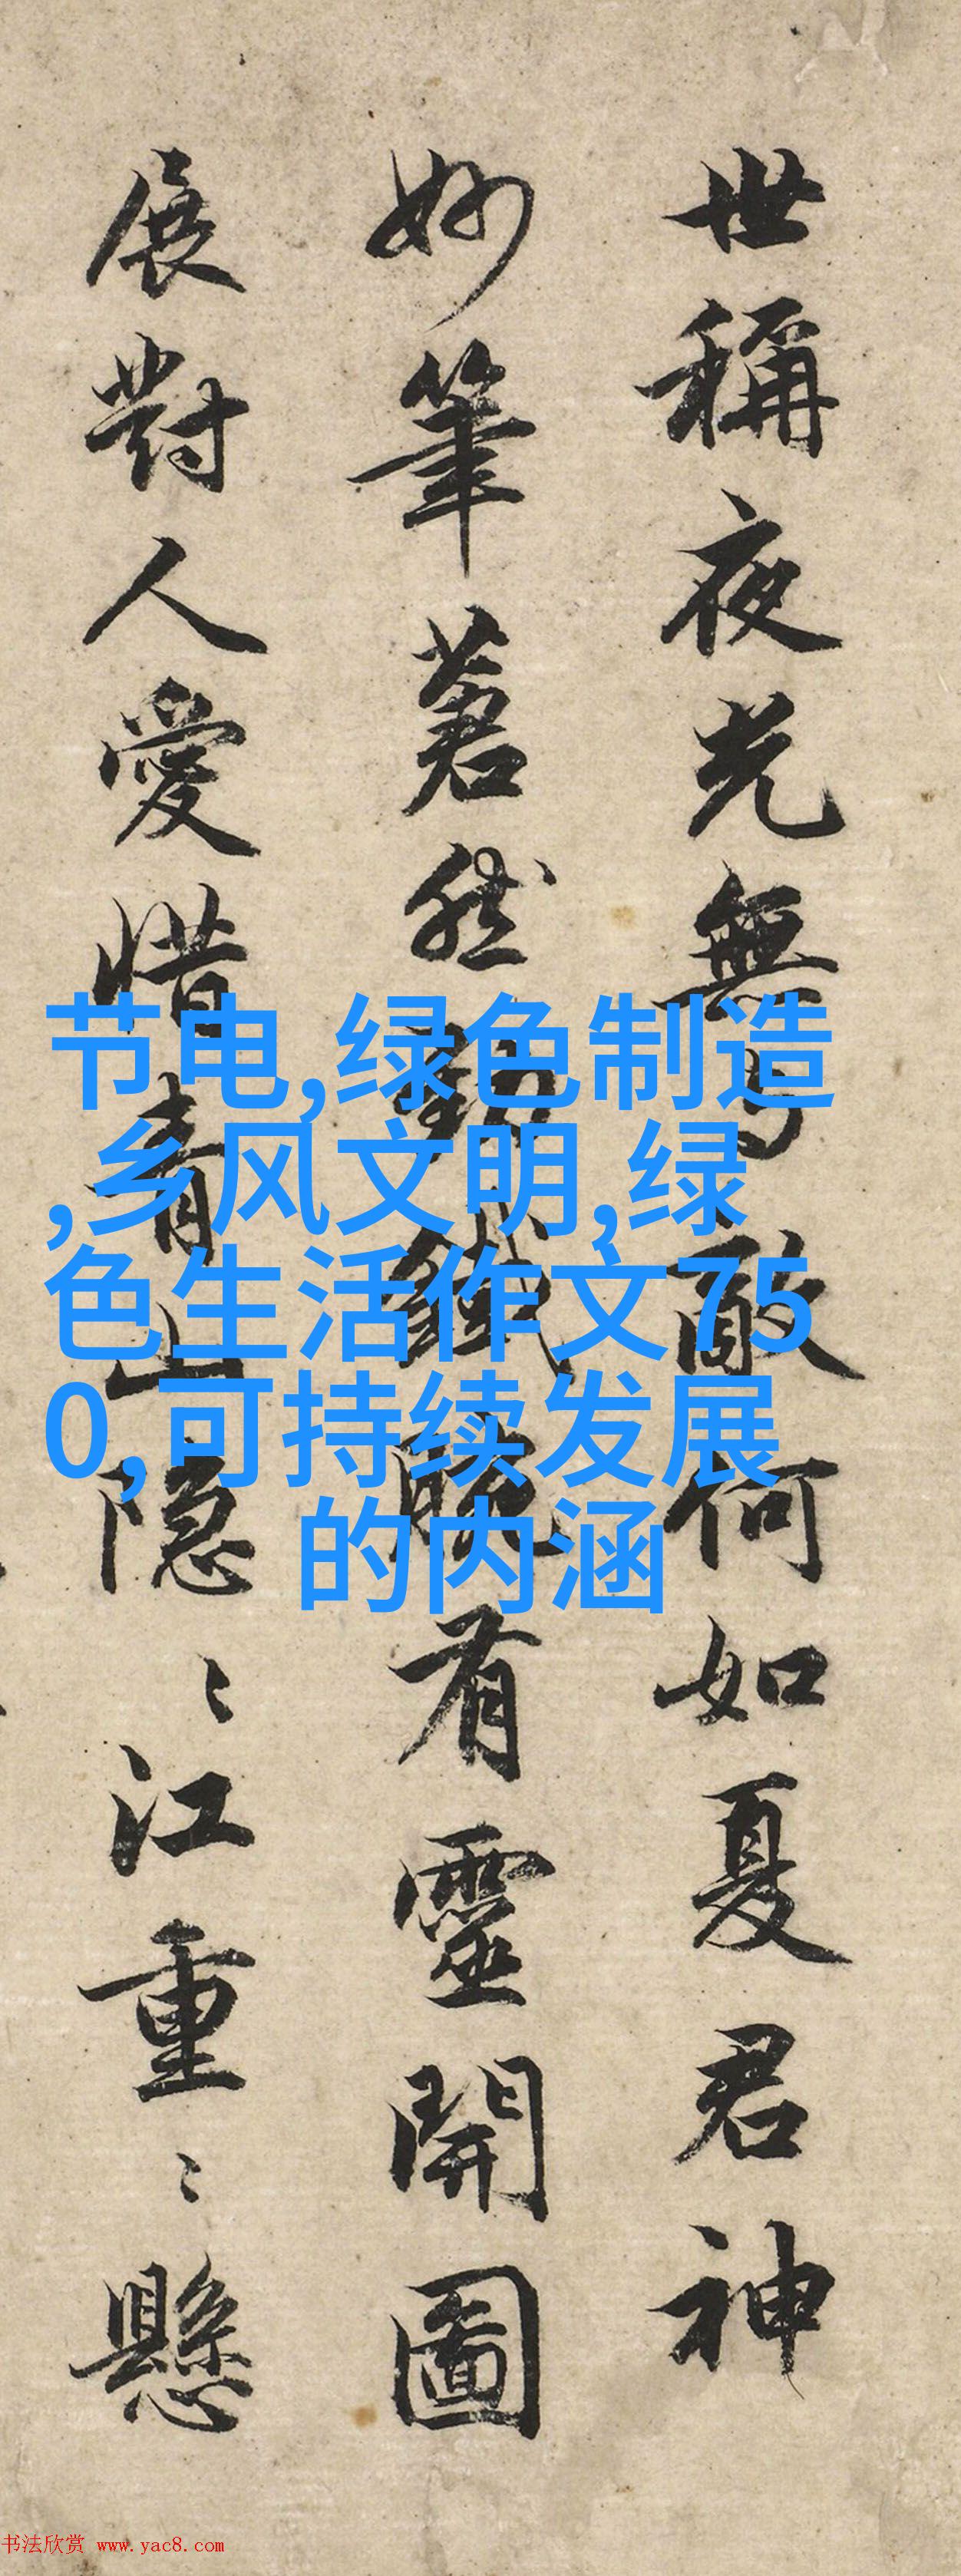 世稱夜光無與敵何如夏君神
妙筆蒼然勁鐵有靈開圖
展對人愛惜青山隱〻江重〻懸
节电,绿色制造
,乡风文明,绿
色生活作文75
0,可持续发展
的内涵
书法欣赏 www.yac8.com